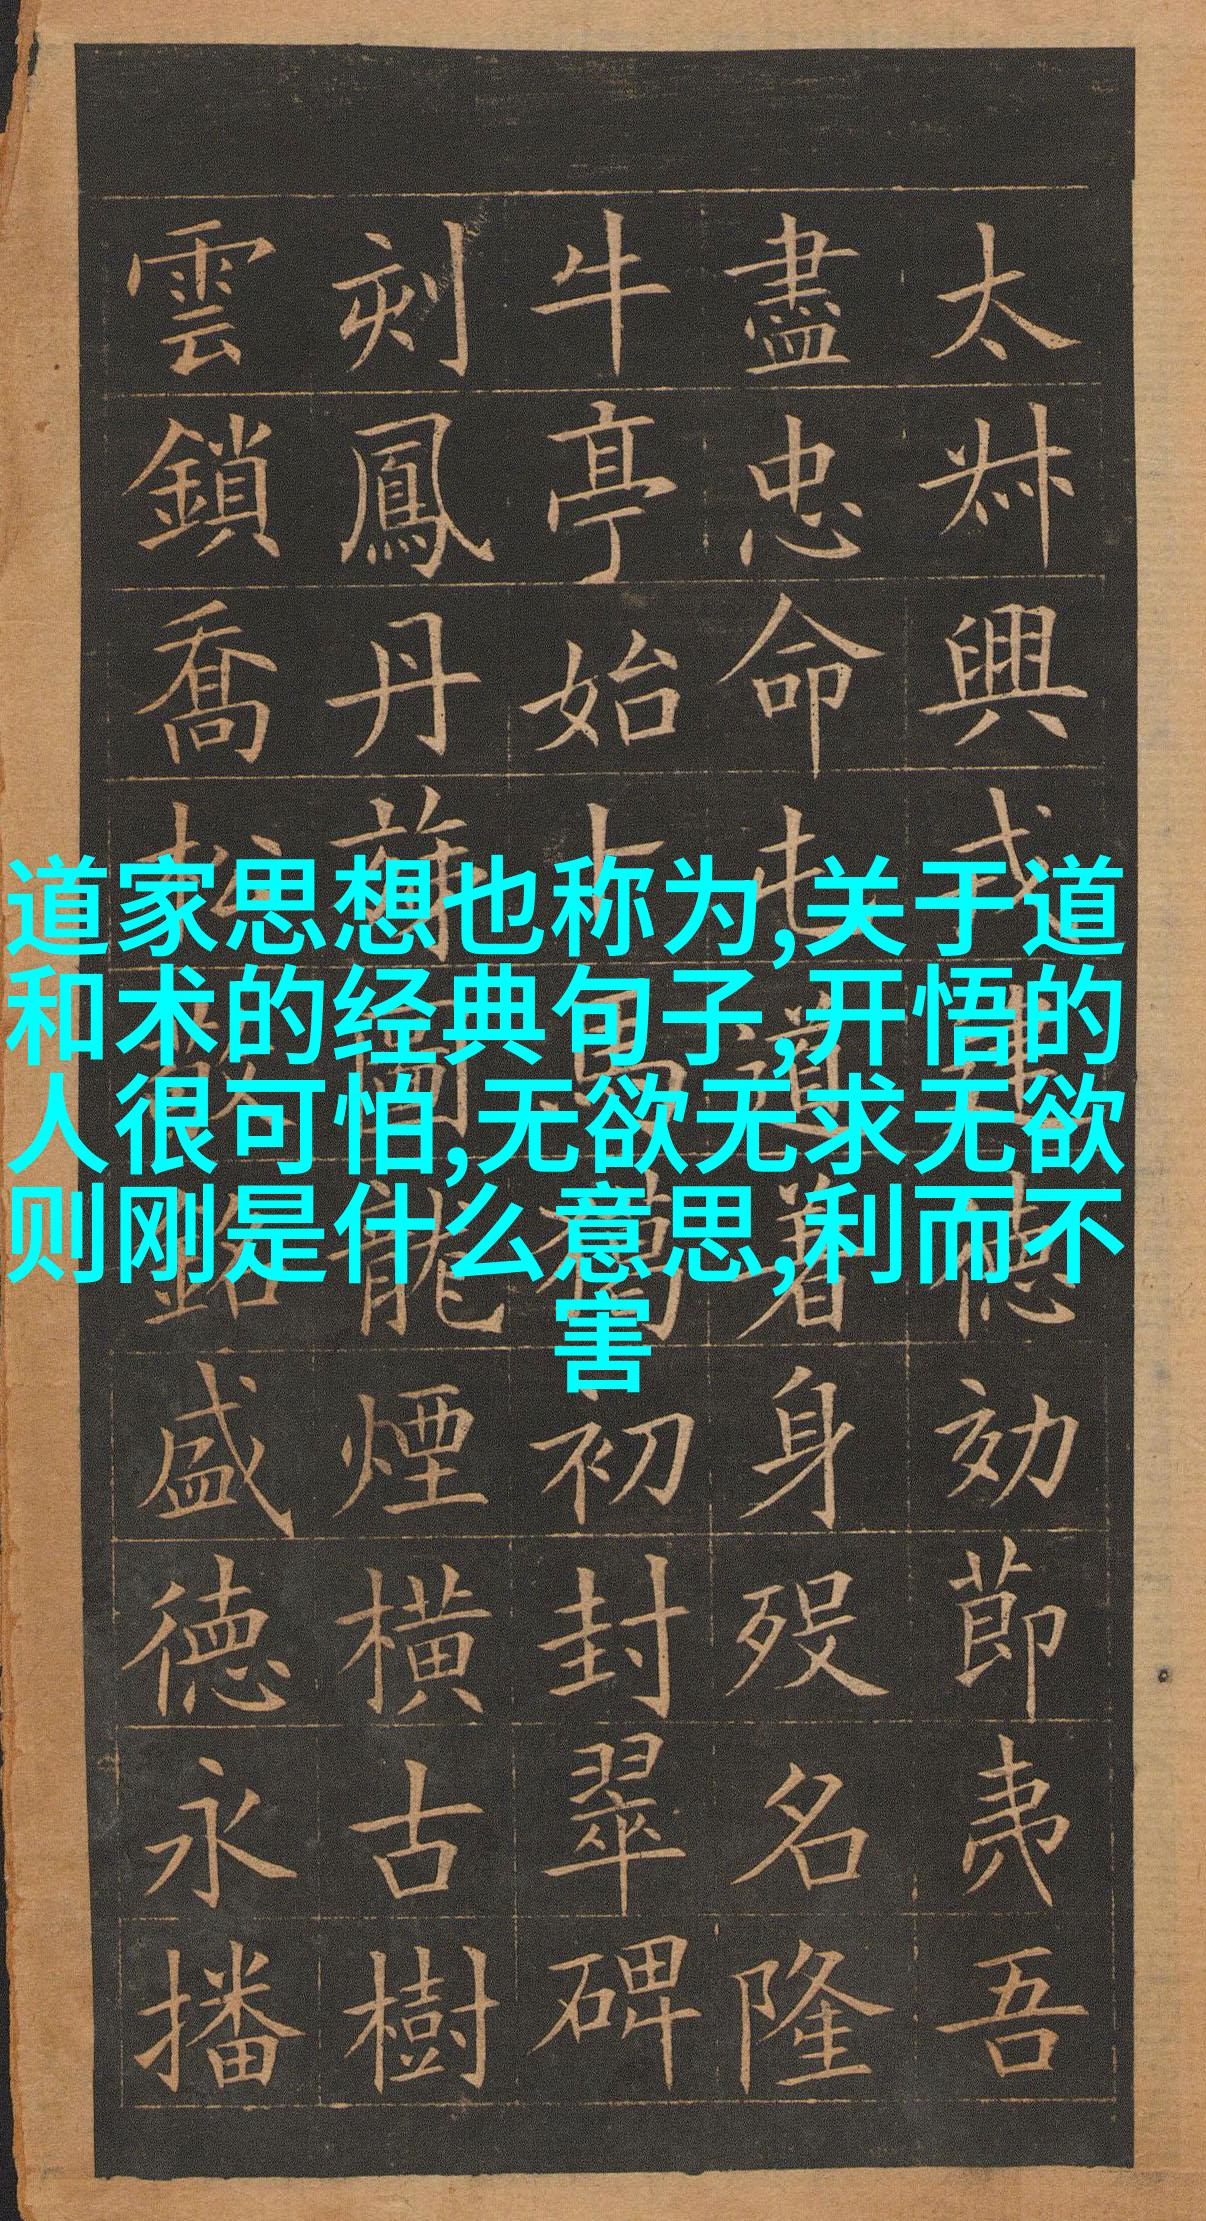 道家思想也称为,关于道
和术的经典句子,开悟的
人很可怕,无欲无求无欲
则刚是什么意思,利而不
害
太興戎德効節夷吾
盡忠命也道著身歿名隆
牛亭始卜馬初封翠碑
刻鳳丹圖龍煙橫古樹
雲鎖喬松盛德永播